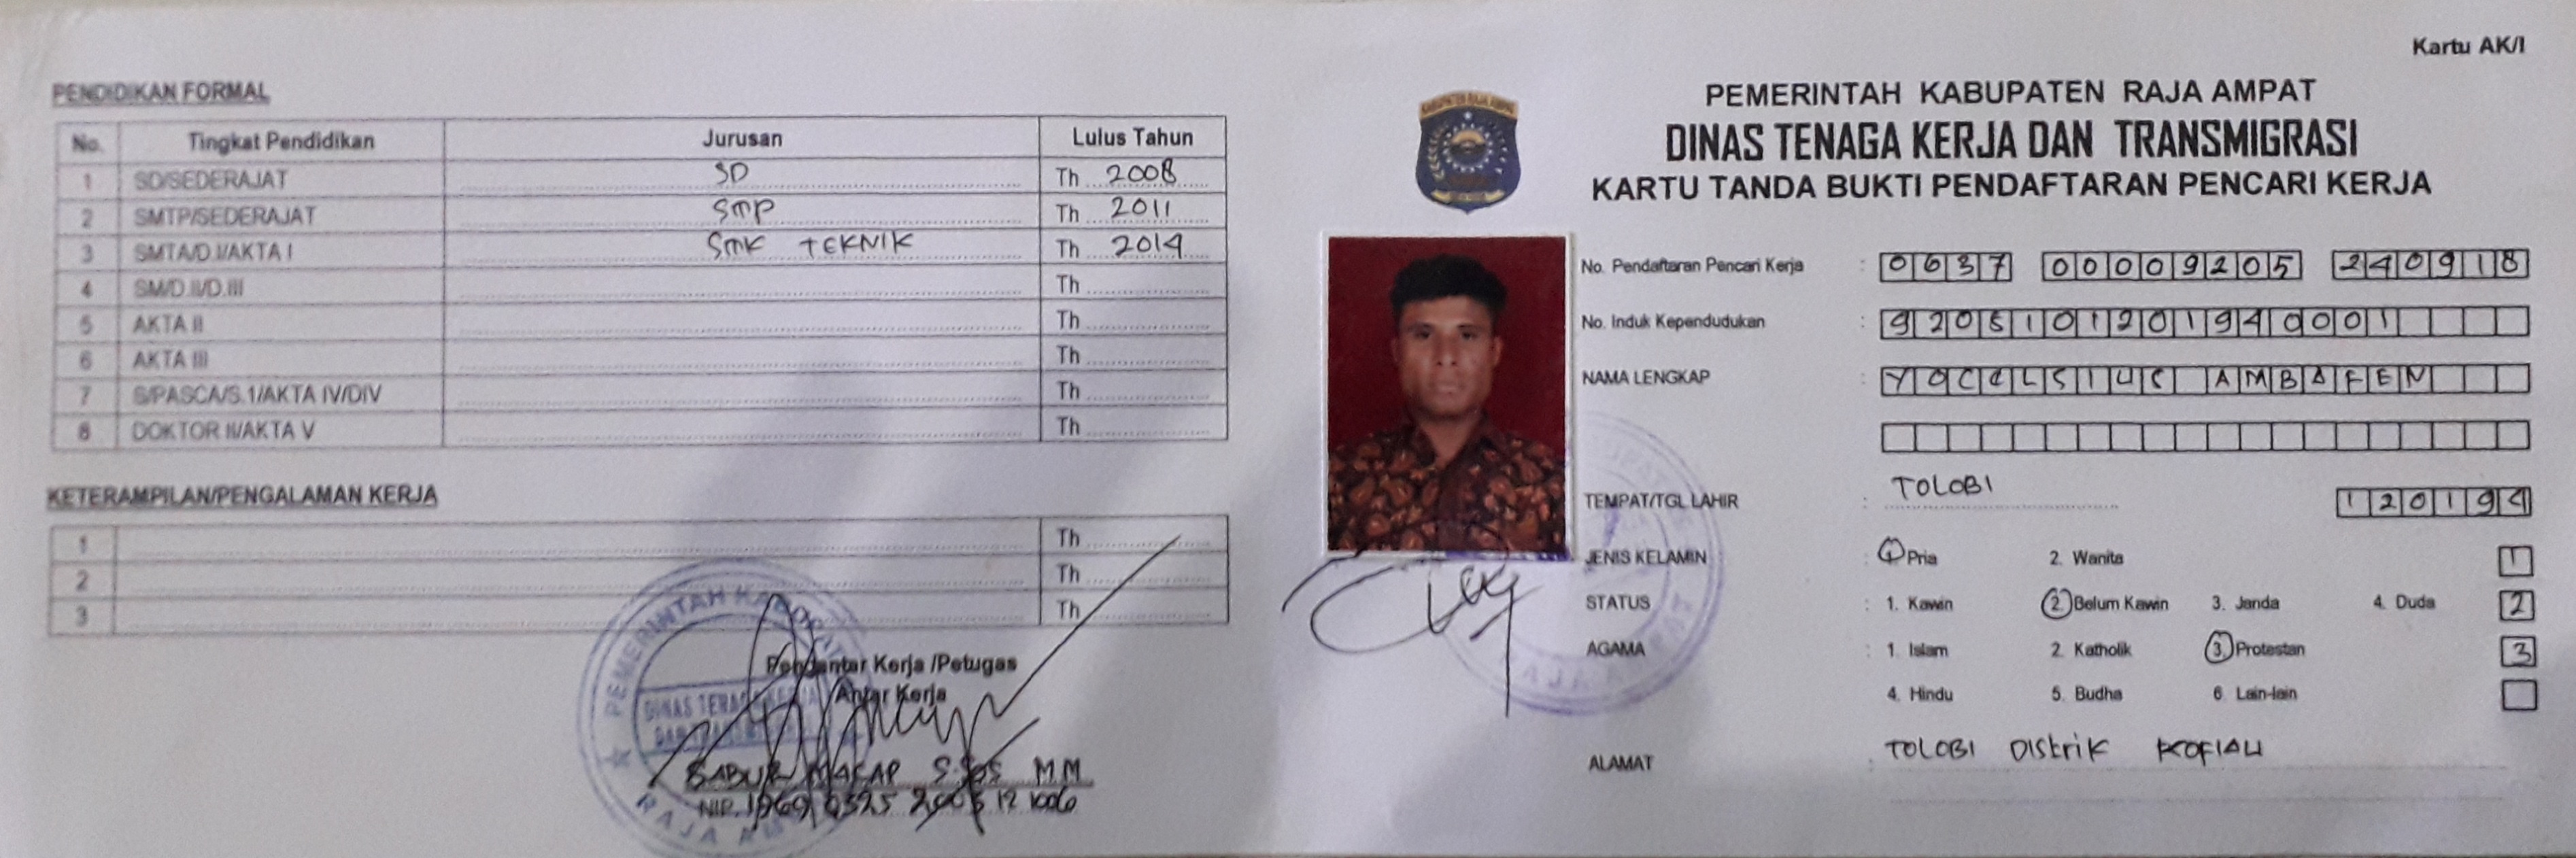 PENDIDIKAN FORMAL
No. Tingkat Pendidikan Jurusan Lulus Tahun
1 SD/SEDERAJAT SD Th 2008
2 SMTP/SEDERAJAT SMP Th 2011
3 SMTA/D.I/AKTA I SMK TEKNIK Th 2014
4 SM/D.II/D.III Th
5 AKTA II Th
6 AKTA III Th
7 S/PASCA/S.1/AKTA IV/DIV Th
8 DOKTOR II/AKTA V Th
KETERAMPILAN/PENGALAMAN KERJA
1 Th
2 Th
3 Th
PEMERINTAH KABUPATEN
DINAS TENAGA KERJA
RAJA AMPAT
Pengantar Kerja /Petugas
Antar Kerja
MM
NIP.
Kartu AK/I
KABUPATEN RAJA AMPAT
PEMERINTAH KABUPATEN RAJA AMPAT
DINAS TENAGA KERJA DAN TRANSMIGRASI
KARTU TANDA BUKTI PENDAFTARAN PENCARI KERJA
No. Pendaftaran Pencari Kerja : 0637 00009205 240918
No. Induk Kependudukan : 9205101201940001
NAMA LENGKAP : AMBAFEN
TEMPAT/TGL LAHIR : TOLOBI 120194
JENIS KELAMIN : 1 Pria 2. Wanita 1
STATUS : 1. Kawin 2 Belum Kawin 3. Janda 4. Duda 2
AGAMA : 1. Islam 2. Katholik 3. Protestan 3
4. Hindu 5. Budha 6. Lain-lain
ALAMAT : TOLOBI Distrik KOFIAU
RAJA AMPAT